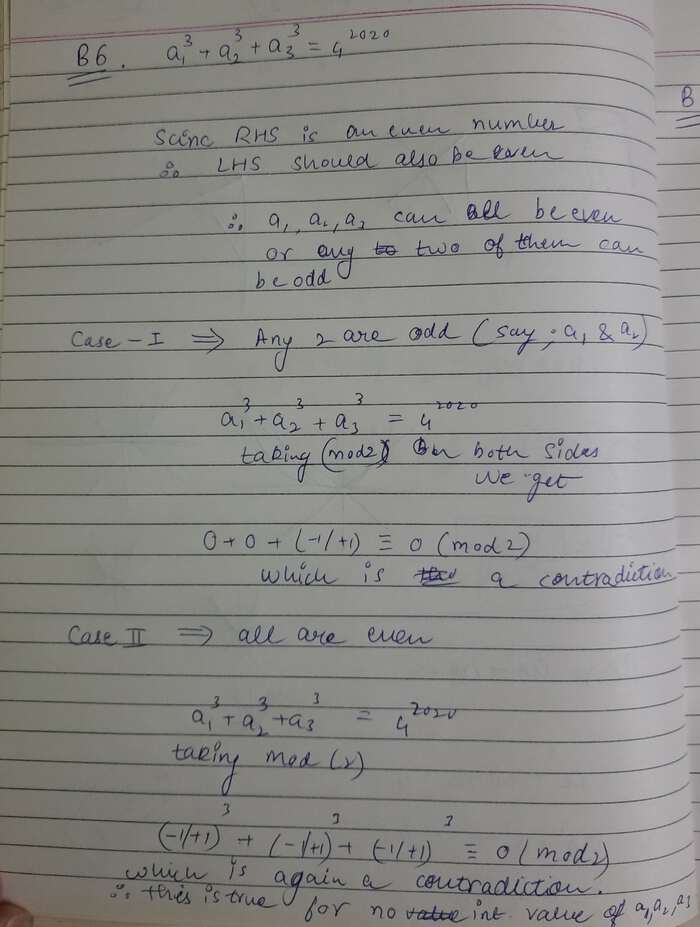 B6. a₁³ + a₂³ + a₃³ = 4²⁰²⁰
B
Scinc RHS is an even number
∴ LHS should also be even
∴ a₁, a₂, a₃ can all be even
or any two of them can
be odd
Case - I ⇒ Any 2 are odd (say, a₁ & a₂)
a₁³ + a₂³ + a₃³ = 4²⁰²⁰
taking (mod 2) on both sides
we get
0 + 0 + (-1/+1) ≡ 0 (mod 2)
which is a contradiction
Case II ⇒ all are even
a₁³ + a₂³ + a₃³ = 4²⁰²⁰
taking mod (2)
(-1/+1)³ + (-1/+1)³ + (-1/+1)³ ≡ 0 (mod 2)
which is again a contradiction.
∴ this is true for no int. value of a₁, a₂, a₃